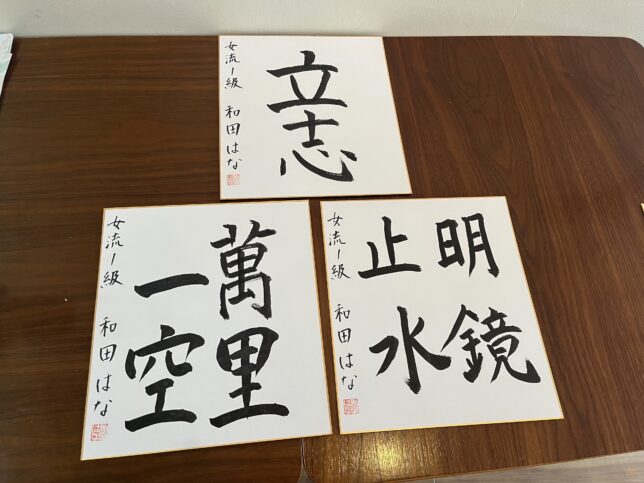 立志
女流1級 和田はな
萬里
一空
女流1級 和田はな
明鏡
止水
女流1級 和田はな